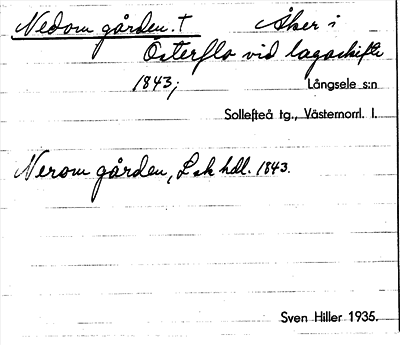 Nedom gården. † Åker i
Österflo vid lagaskifte
1843; Långsele s:n
Sollefteå tg., Västernorrl. l.
Nerom gården, Lsk hdl. 1843.
Sven Hiller 1935.